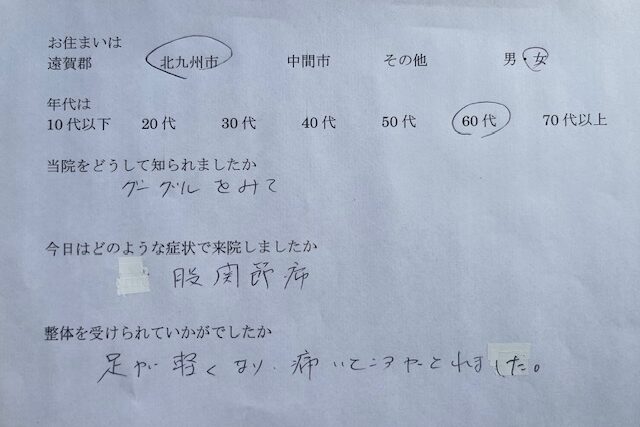 お住まいは
遠賀郡 北九州市 中間市 その他 男・女
年代は
10代以下 20代 30代 40代 50代 60代 70代以上
当院をどうして知られましたか
グーグルをみて
今日はどのような症状で来院しましたか
股関節痛
整体を受けられていかがでしたか
足が軽くなり、痛いところがとれました。